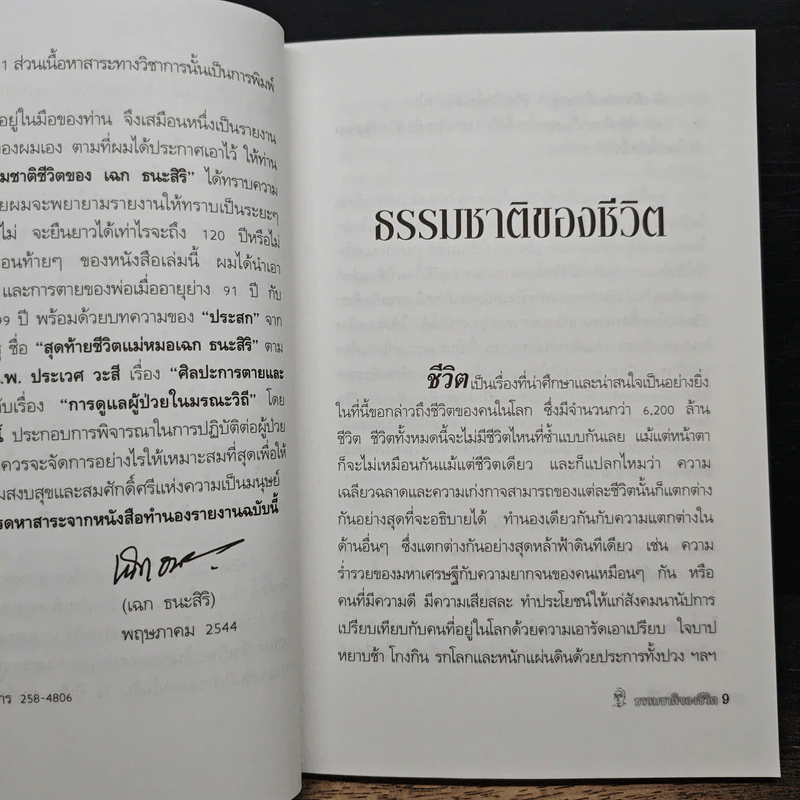 1 ส่วนเนื้อหาสาระทางวิชาการนั้นเป็นการพิมพ์
อยู่ในมือของท่าน จึงเสมือนหนึ่งเป็นรายงาน
ของผมเอง ตามที่ผมได้ประกาศเอาไว้ ให้ท่าน
มชาติชีวิตของ เฉก ธนะสิริ” ได้ทราบความ
ยผมจะพยายามรายงานให้ทราบเป็นระยะๆ
ไม่ จะยืนยาวได้เท่าไรจะถึง 120 ปีหรือไม่
อนท้ายๆ ของหนังสือเล่มนี้ ผมได้นำเอา
และการตายของพ่อเมื่ออายุย่าง 91 ปี กับ
99 ปี พร้อมด้วยบทความของ “ประสก” จาก
ชื่อ “สุดท้ายชีวิตแม่หมอเฉก ธนะสิริ” ตาม
.พ. ประเวศ วะสี เรื่อง “ศิลปะการตายและ
ับเรื่อง “การดูแลผู้ป่วยในมรณะวิถี” โดย
์ ประกอบการพิจารณาในการปฏิบัติต่อผู้ป่วย
ควรจะจัดการอย่างไรให้เหมาะสมที่สุดเพื่อให้
มสงบสุขและสมศักดิ์ศรีแห่งความเป็นมนุษย์
รดหาสาระจากหนังสือทำนองรายงานฉบับนี้
(เฉก ธนะสิริ)
พฤษภาคม 2544
าร 258-4806
ธรรมชาติของชีวิต
ชีวิตเป็นเรื่องที่น่าศึกษาและน่าสนใจเป็นอย่างยิ่ง
ในที่นี้ขอกล่าวถึงชีวิตของคนในโลก ซึ่งมีจำนวนกว่า 6,200 ล้าน
ชีวิต ชีวิตทั้งหมดนี้จะไม่มีชีวิตไหนที่ซ้ำแบบกันเลย แม้แต่หน้าตา
ก็จะไม่เหมือนกันแม้แต่ชีวิตเดียว และก็แปลกไหมว่า ความ
เฉลียวฉลาดและความเก่งกาจสามารถของแต่ละชีวิตนั้นก็แตกต่าง
กันอย่างสุดที่จะอธิบายได้ ทำนองเดียวกันกับความแตกต่างใน
ด้านอื่นๆ ซึ่งแตกต่างกันอย่างสุดหล้าฟ้าดินทีเดียว เช่น ความ
ร่ำรวยของมหาเศรษฐีกับความยากจนของคนเหมือนๆ กัน หรือ
คนที่มีความดี มีความเสียสละ ทำประโยชน์ให้แก่สังคมนานัปการ
เปรียบเทียบกับคนที่อยู่ในโลกด้วยความเอารัดเอาเปรียบ ใจบาป
หยาบช้า โกงกิน รกโลกและหนักแผ่นดินด้วยประการทั้งปวง ฯลฯ
ธรรมชาติของชีวิต 9